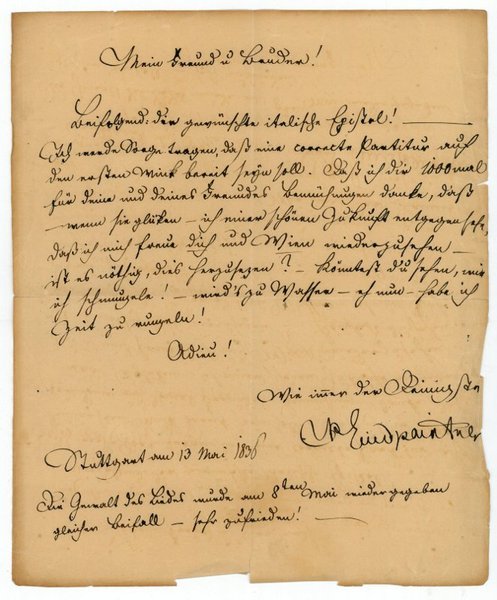 Mein Freund u Bruder!
Beifolgend: der gewünschte italische Epistol!
Ich werde Sorge tragen, daß eine correcte Partitur auf
den ersten Wink bereit seyn soll. Daß ich dir 1000mal
für deine und deines Freundes Bemühungen danke, daß
– wenn sie glüken – ich einer schönen Zukunft entgegen sehe,
daß ich mich freue dich und Wien wiederzusehen –
ist es nöthig, dies herzusezen? – könntest du sehen, wie
ich schmunzele! – wird's zu Wasser – eh nun – habe ich
Zeit zu runzeln!
Adieu!
Wie immer der Deinigste
Lindpaintner
Stuttgart am 13 Mai 1836
Die Gewalt des Liedes wurde am 8ten Mai wieder gegeben
gleicher Beifall – sehr zufrieden! –